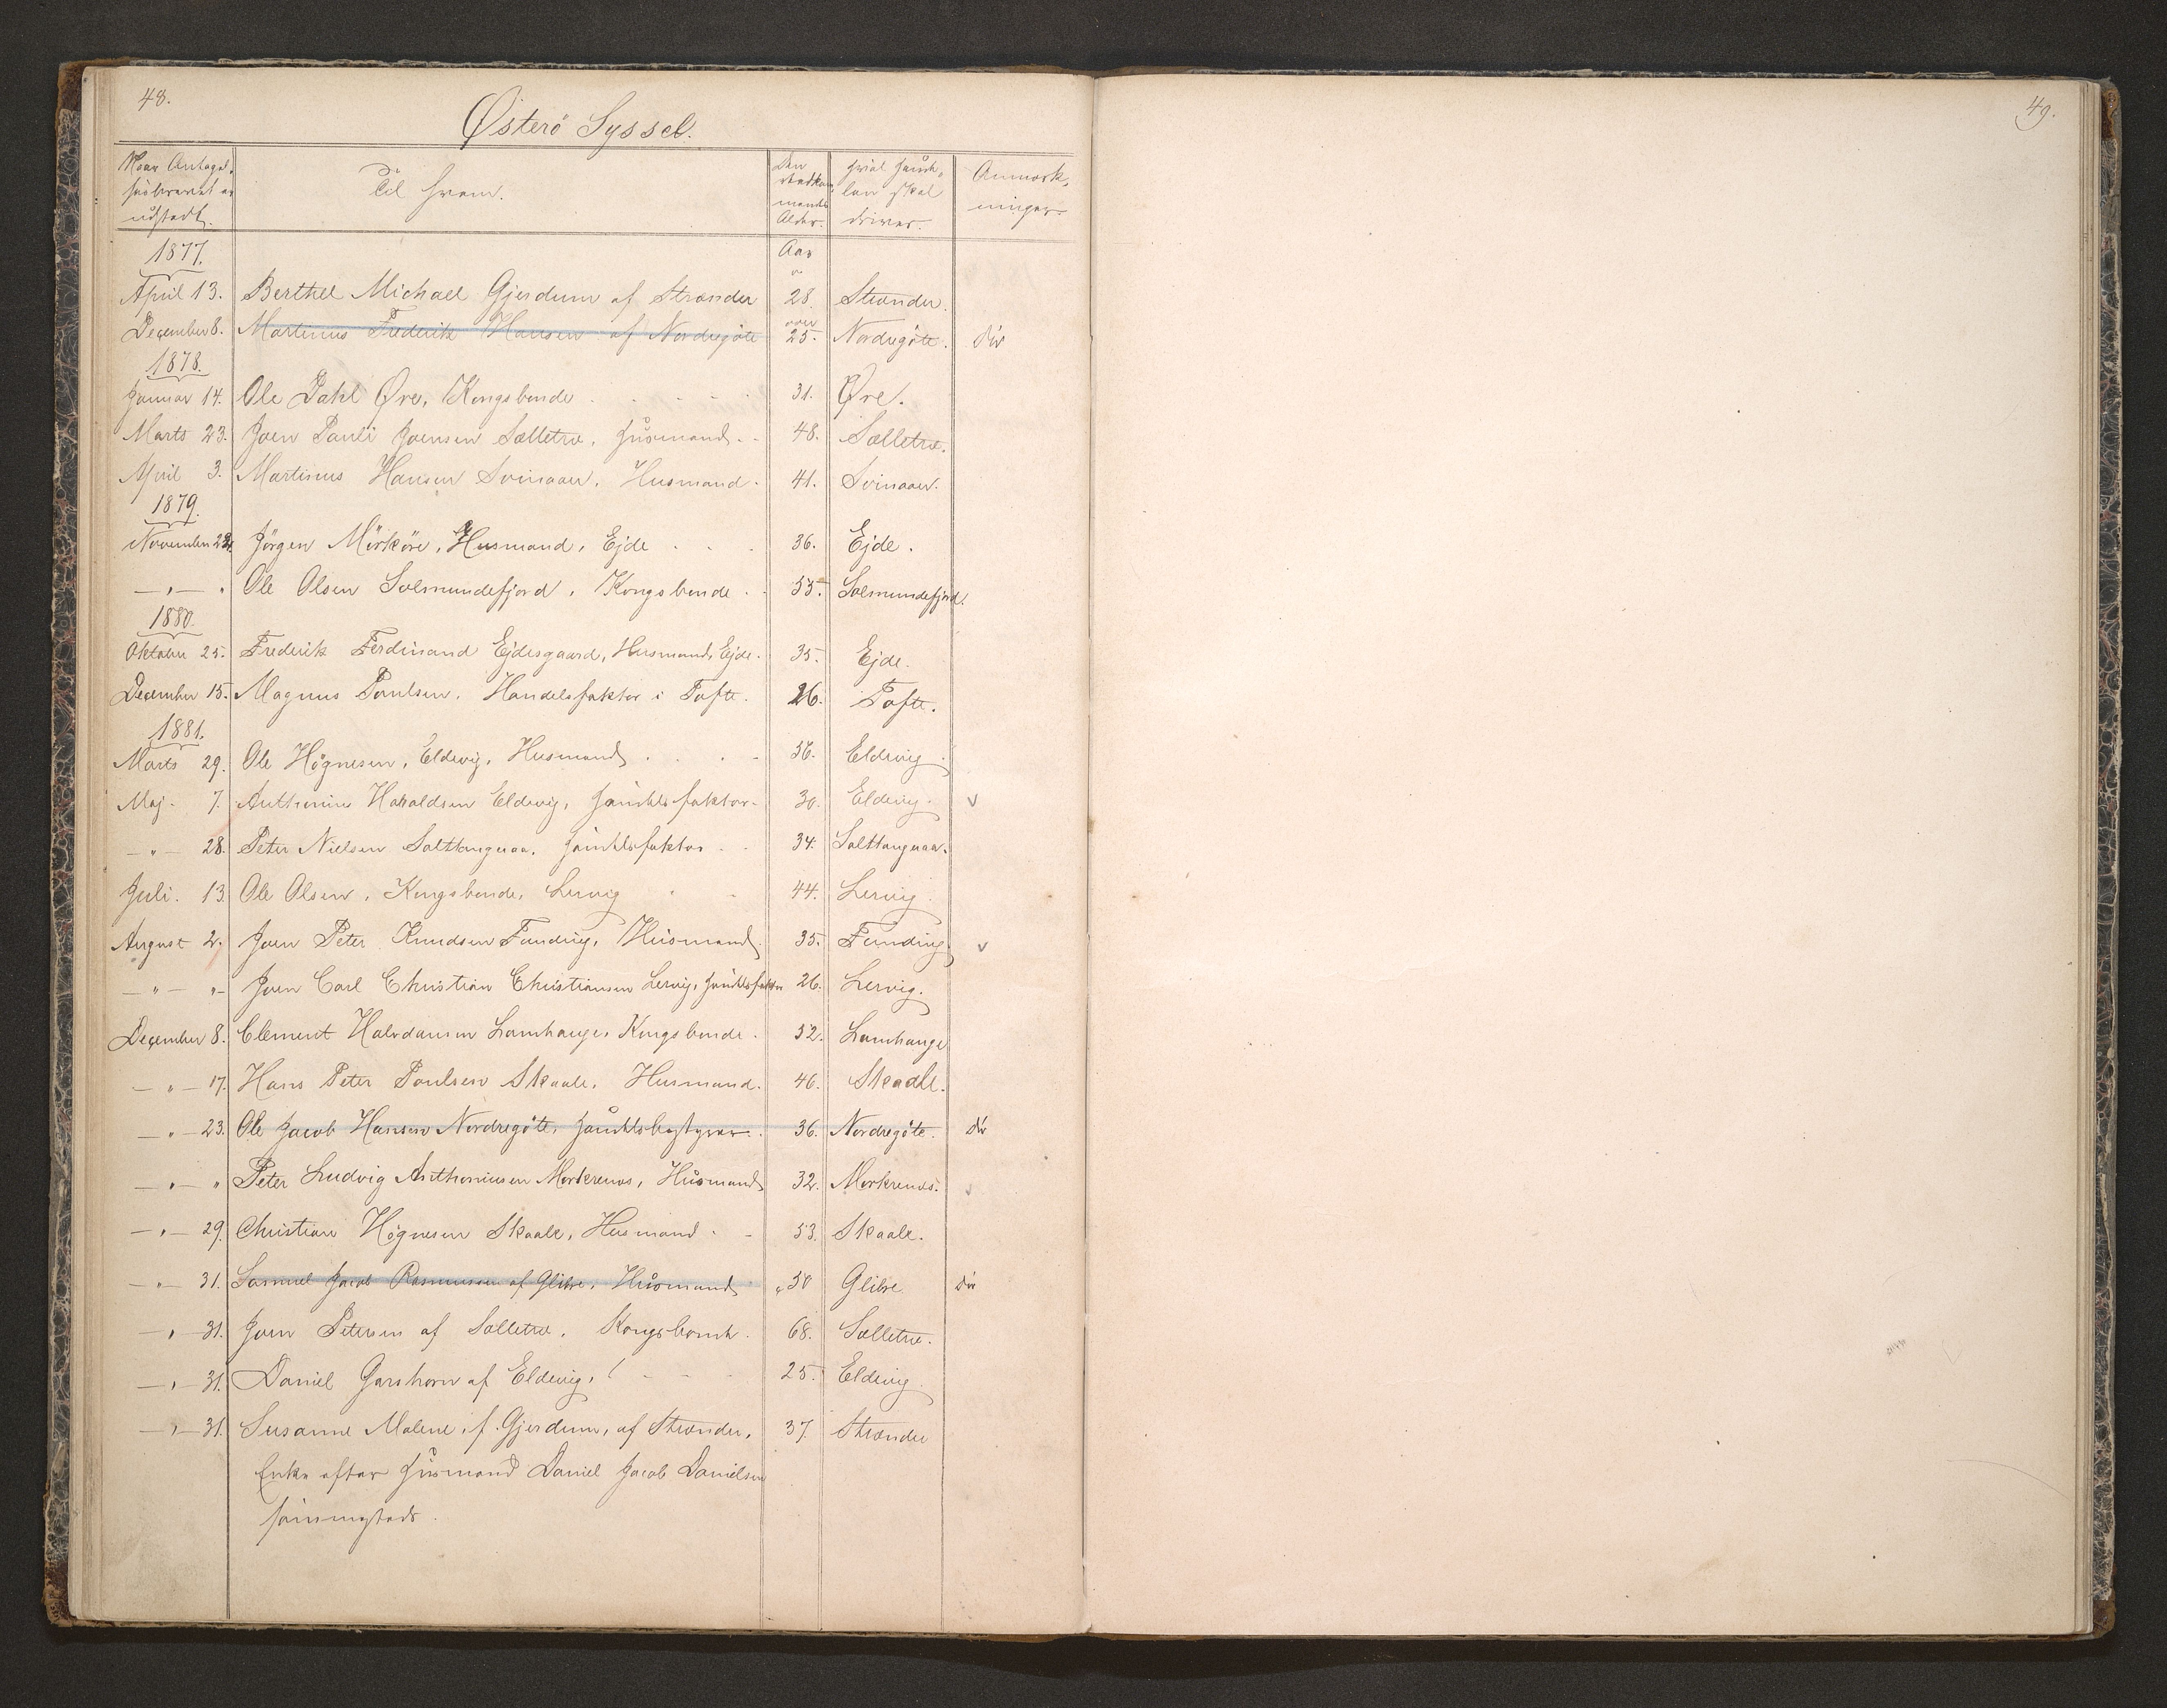 48.
49.
Østerö Syssel.
Naar Antagel-
sesbeviset er
udstedt.
Til hvem.
Den
Alder.
hvor Hand-
len skal
drives.
Anmærk-
ninger.
1877.
Aar
April 13. Berthel Michael Gjerdum af Strænder 28. Strænder.
December 8. Martinus Frederik Hansen af Nordregöte over 25. Nordregöte. död
1878.
Januar 14. Ole Dahl Øre, Kongsbonde 31. Øre.
Marts 23. Joen Pauli Joensen Sælletræ, Husmand. 48. Sælletræ.
April 3. Martinus Hansen Svinaaer, Husmand. 41. Svinaaer.
1879.
November 22. Jörgen Mörköre, Husmand, Ejde 36. Ejde.
— " — " Ole Olsen Solmundefjord, Kongsbonde. 55. Solmundefjord.
1880.
Oktober 25. Frederik Ferdinand Ejdesgaard, Husmand, Ejde. 35. Ejde.
December 15. Magnus Poulsen, Handelsfaktor i Tofte. 26. Tofte.
1881.
Marts 29. Ole Högnesen, Eldevig, Husmand 56. Eldevig.
Maj. 7. Anthonius Haraldsen Eldevig, Handelsfaktor. 30. Eldevig. v
— " — 28. Peter Nielsen Salttanguaa, Handelsfaktor 34. Salttanguaa.
Juli. 13. Ole Olsen, Kongsbonde, Lervig 44. Lervig.
August 2. Joen Peter Knudsen Funding, Husmand. 35. Funding v
— " — " — Joen Carl Christian Christiansen Lervig, Handelsfaktor 26. Lervig.
December 8. Clement Halvdansen Lamhauge, Kongsbonde. 52. Lamhauge
— " — 17. Hans Peter Poulsen Skaale, Husmand. 46. Skaale.
— " — 23. Ole Jacob Hansen Nordregöte, Handelsbestyrer. 36. Nordregöte. död
— " — " Peter Ludvig Anthoniusen Morkrenæs, Husmand 32. Morkrenæs. v
— " — 29. Christian Högnesen Skaale, Husmand. 53. Skaale.
— " — 31. Samuel Jacob Rasmussen af Glibre, Husmand 50 Glibre död
— " — 31. Joen Petersen af Sælletræ, Kongsbonde. 68. Sælletræ.
— " — 31. Daniel Garshorn af Eldevig, 25. Eldevig
— " — 31. Susanne Malene, f. Gjerdum, af Strænder, 37. Strænder
Enke efter Husmand Daniel Jacob Danielsen
sammesteds.